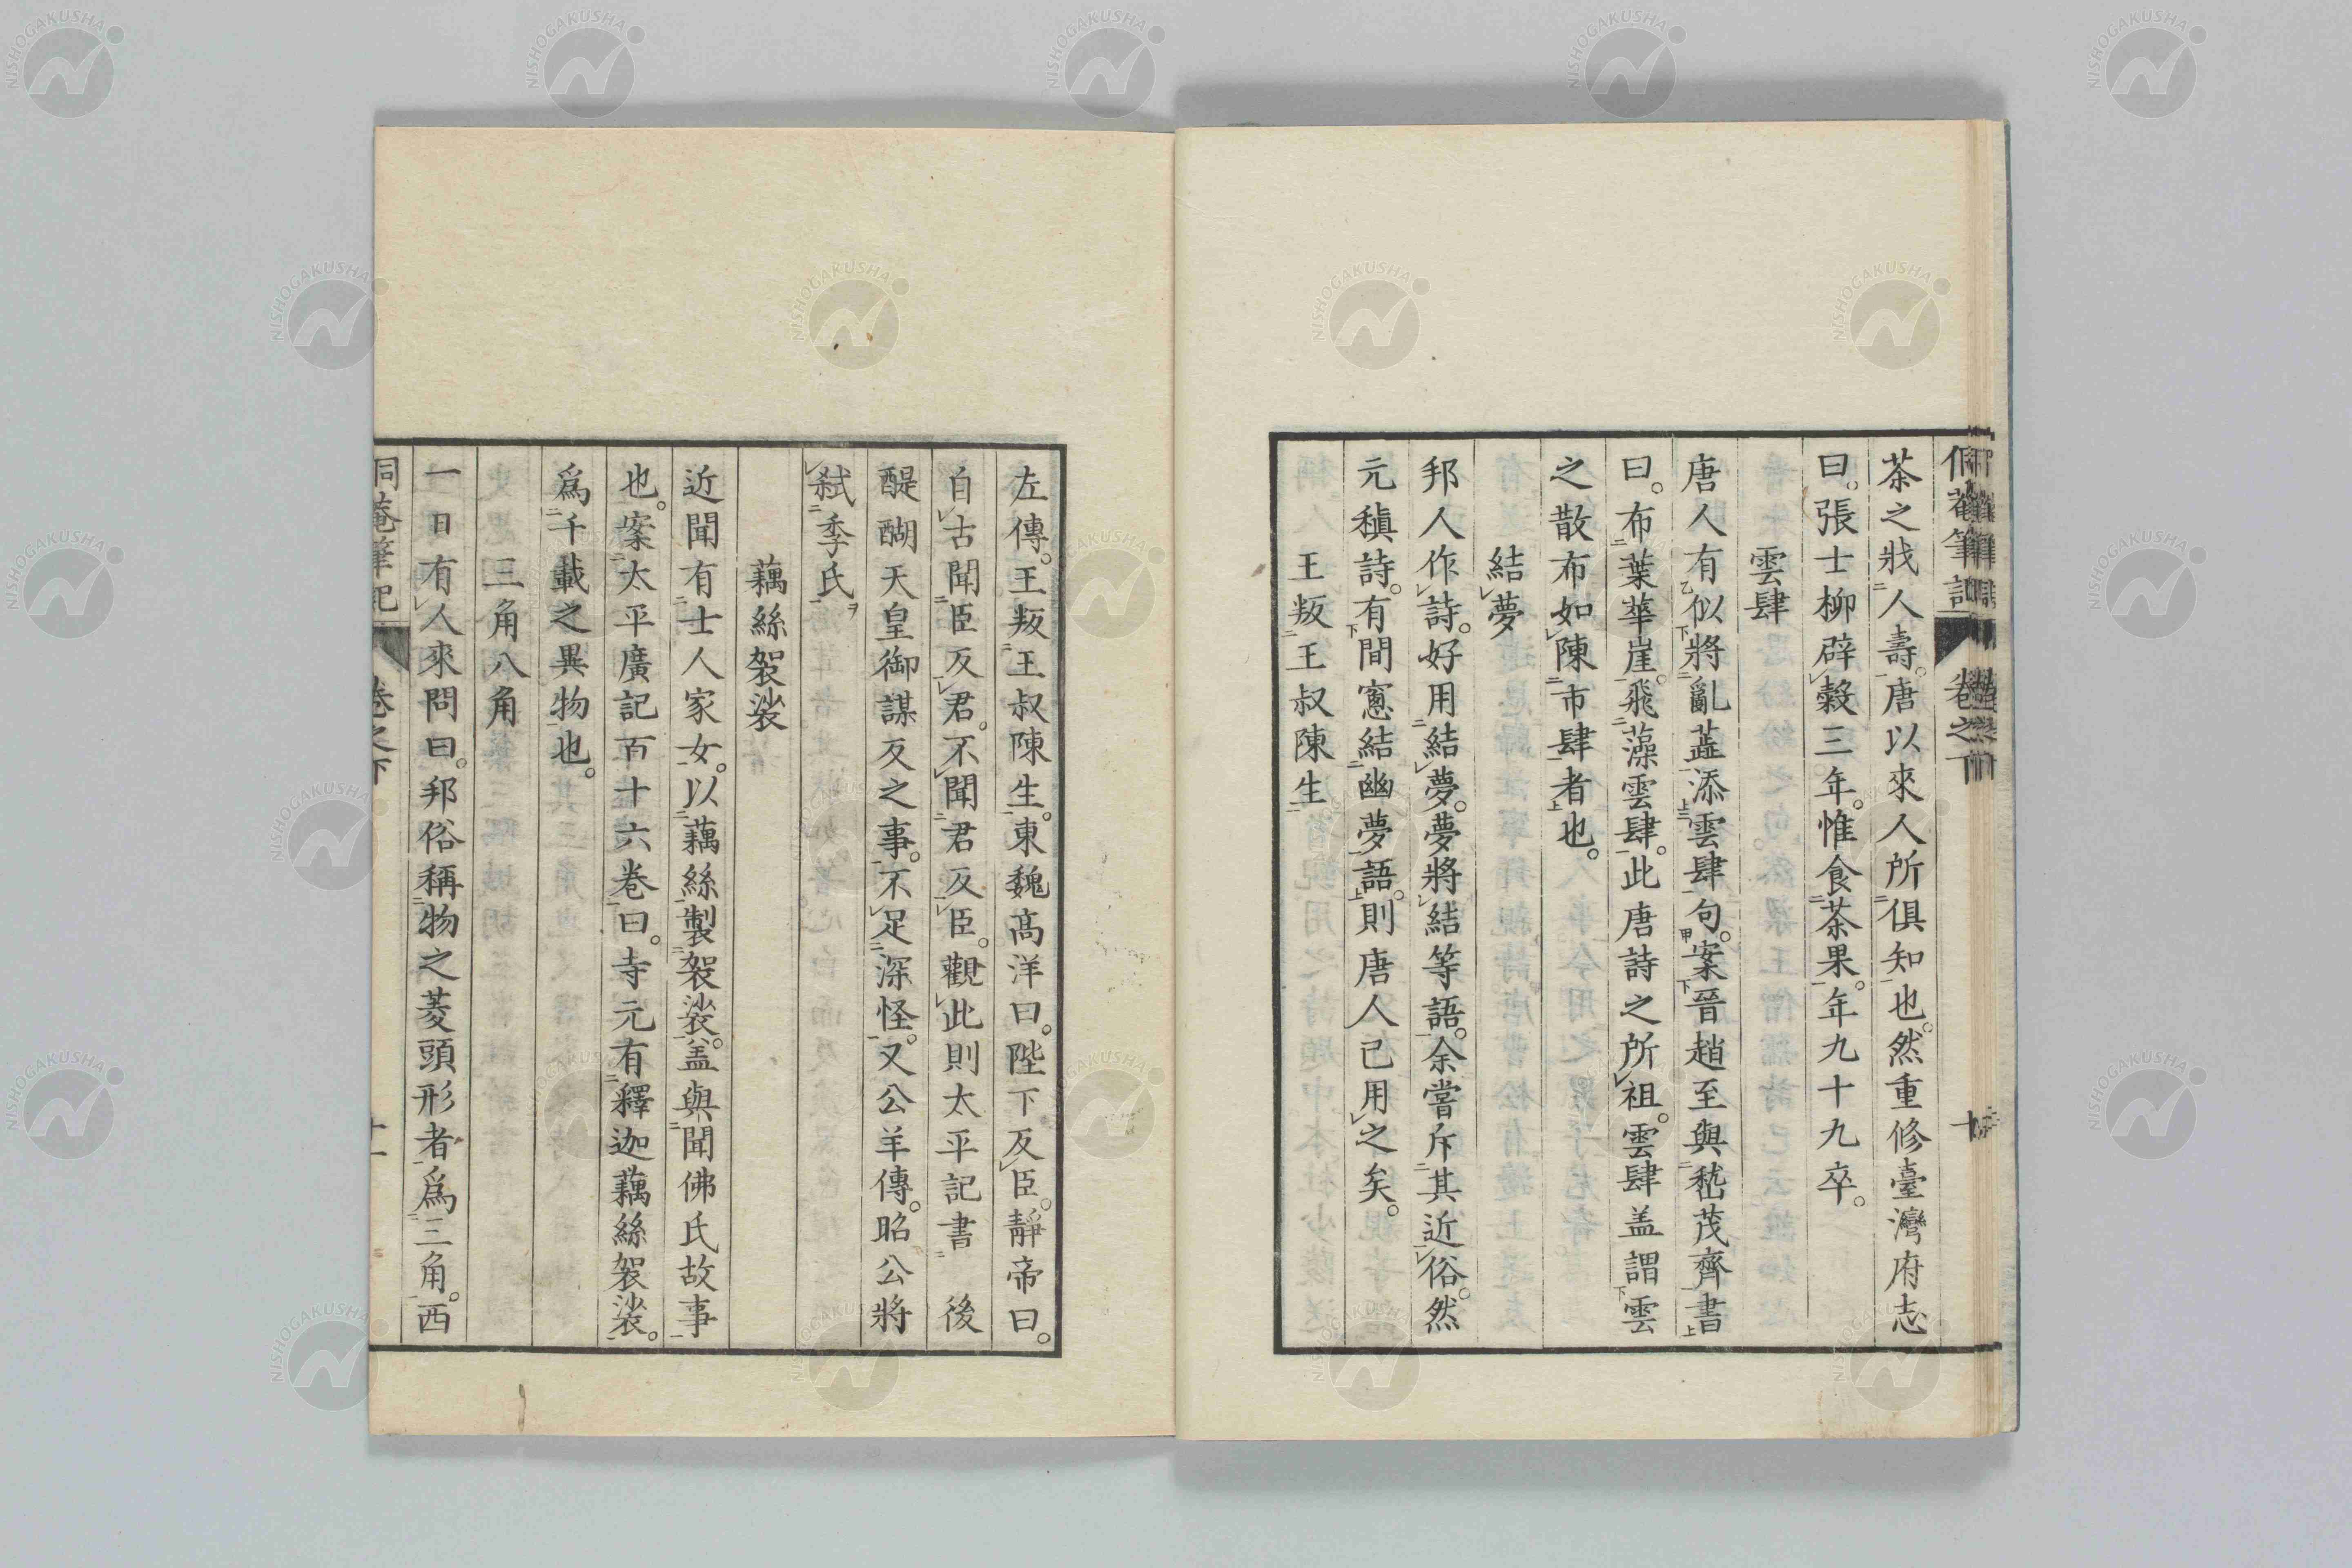 茶之戕人壽。唐以來人所俱知也。然重修臺灣府志
曰。張士柳辟穀三年。惟食茶果。年九十九卒。
雲肆
唐人有似將亂藍添雲肆句。案晉趙至與嵇茂齊書
曰。布葉華崖。飛藻雲肆。此唐詩之所祖。雲肆盖謂雲
之散布如陳市肆者也。
結夢
邦人作詩。好用結夢。夢將結等語。余嘗斥其近俗。然
元稹詩。有間窻結幽夢語。則唐人已用之矣。
王叛王叔陳生
左傳。王叛王叔陳生。東魏高洋曰。陛下反臣。靜帝曰。
自古聞臣反君。不聞君反臣。觀此則太平記書 後
醍醐天皇御謀反之事。不足深怪。又公羊傳。昭公將
弑季氏
藕絲袈裟
近聞有士人家女。以藕絲製袈裟。盖與聞佛氏故事
也。案太平廣記百十六卷曰。寺元有釋迦藕絲袈裟。
爲千載之異物也。
三角八角
一日有人來問曰。邦俗稱物之菱頭形者爲三角。西
侗菴筆記 卷之下 十一
NISHOGAKUSHA